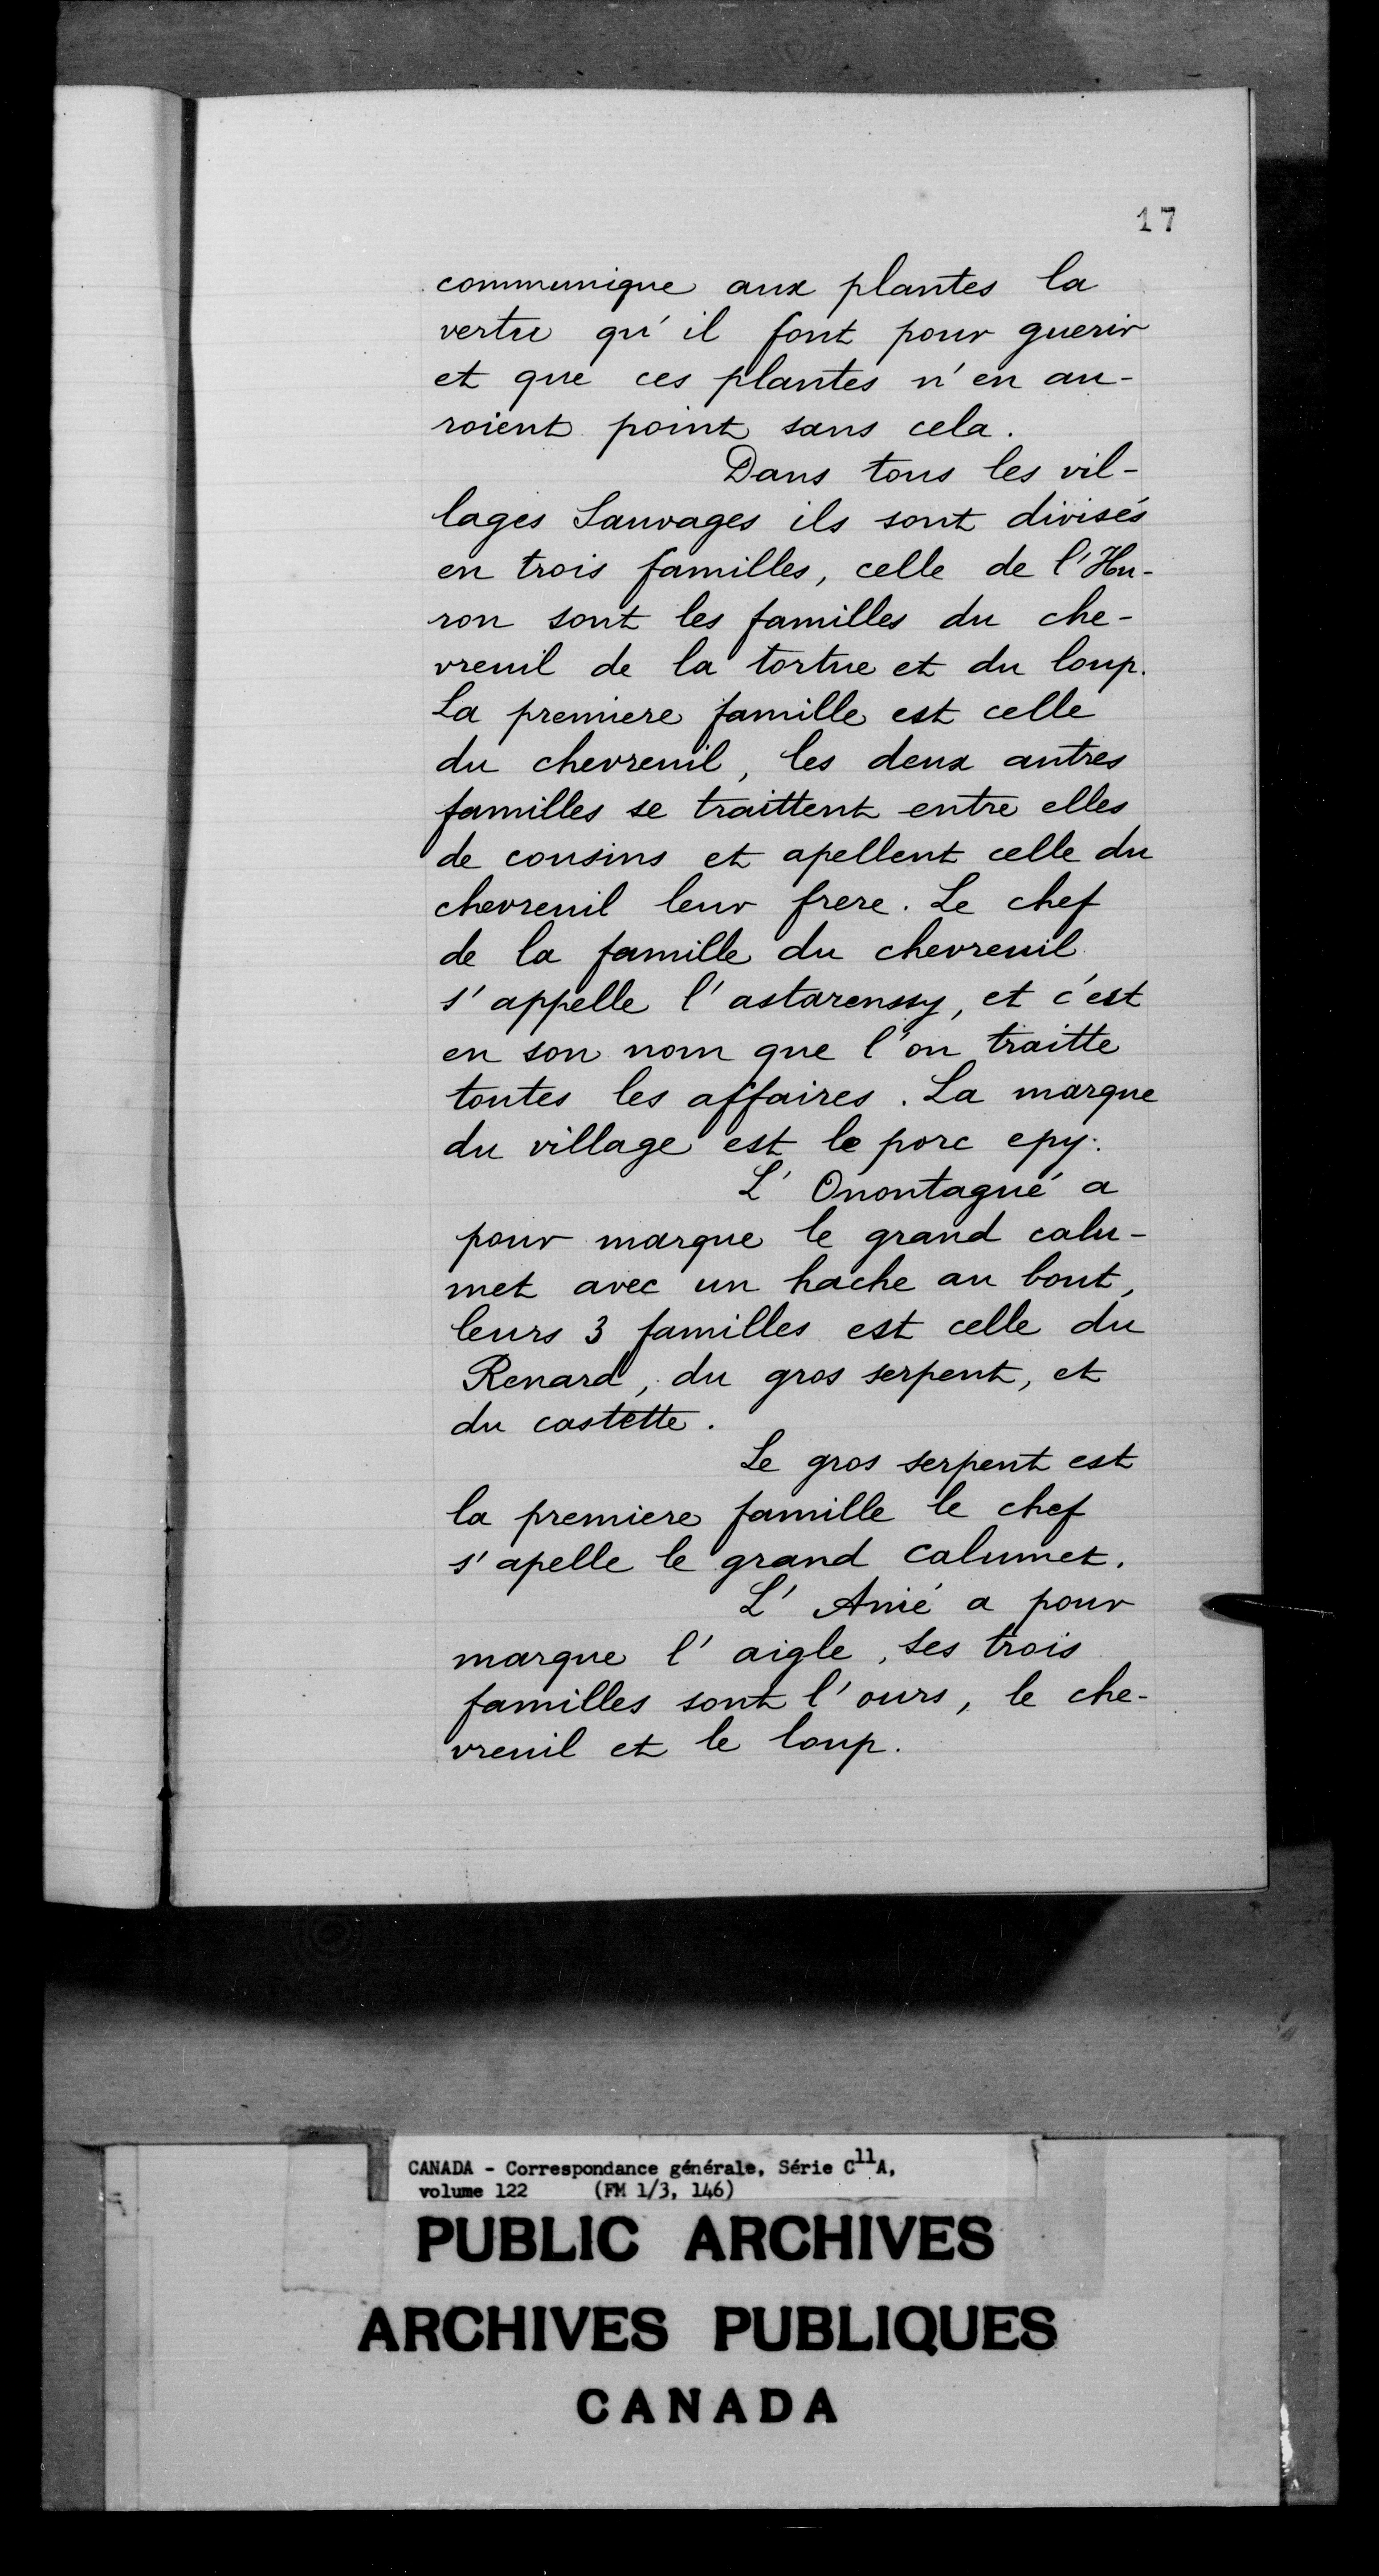 17
communique aux plantes la
vertu qu'il font pour guerir
et que ces plantes n'en au-
roient point sans cela.
Dans tous les vil-
lages Sauvages ils sont divisés
en trois familles, celle de l'Hu-
ron sont les familles du che-
vreuil de la tortue et du loup.
La premiere famille est celle
du chevreuil, les deux autres
familles se traittent entre elles
de cousins et apellent celle du
chevreuil leur frere. Le chef
de la famille du chevreuil
s'appelle l'astarenssy, et c'est
en son nom que l'on traitte
toutes les affaires. La marque
du village est le porc epy.
L'Onontagué a
pour marque le grand calu-
met avec un hache au bout,
leurs 3 familles est celle du
Renard, du gros serpent, et
du castette.
Le gros serpent est
la premiere famille le chef
s'apelle le grand calumet.
L'Anié a pour
marque l'aigle, ses trois
familles sont l'ours, le che-
vreuil et le loup.
CANADA - Correspondance générale, Série C11A,
volume 122 (FM 1/3, 146)
PUBLIC ARCHIVES
ARCHIVES PUBLIQUES
CANADA